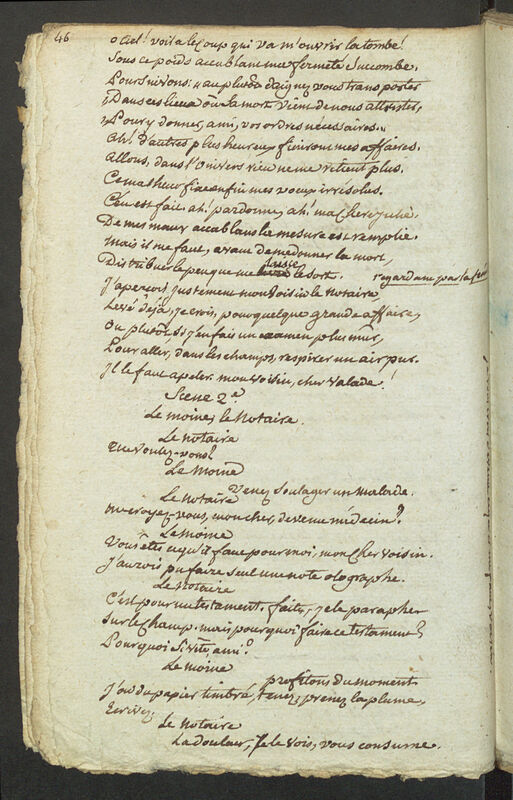 46
o ciel! voila le coup qui va m'ouvrir la tombe!
Sous ce poids accablant ma fermeté succombe.
Poursuivons: „ au plutôt daignez vous transporter
„ Dans ces lieux où la mort vient de nous attrister,
„ Pour y donner, ami, vos ordres nécessaires...
Ah! d'autres plus heureux finiront mes affaires.
Allons, dans l'Univers rien ne me retient plus.
Ce malheur fixe enfin mes voeux irrésolus.
C'en est fait. ah! pardonne, ah! ma chere julie.
De mes maux accablans la mesure est remplie.
mais il me faut, avant de me donner la mort,
Distribuer le peu que me laisse le sort. regardant par la fe
J'aperçois justement mon voisin le Notaire,
Levé déja, je crois, pour quelque grande affaire,
Ou plutôt, si j'en fais un examen plus mûr,
Pour aller, dans les champs, respirer un air pur.
Il le faut apeler. mon voisin, cher Valade!
Scene 2e.
Le moine, le Notaire.
Le notaire
Que voulez-vous?
Le Moine
Venez soulager un malade.
Le Notaire
me croyez-vous, mon cher, devenu médecin?
Le moine
Vous êtes ce qu'il faut pour moi, mon cher voisin.
J'aurois pu faire seul une note olographe.
Le Notaire
C'est pour un testament. faites, je le paraphe
sur le champ. mais pourquoi faire ce testament?
Pourquoi si vîte, ami?
Le moine
profitons du moment.
J'ai du papier timbré, tenez, prenez la plume,
Ecrivez.
Le Notaire
La douleur, je le vois, vous consume.